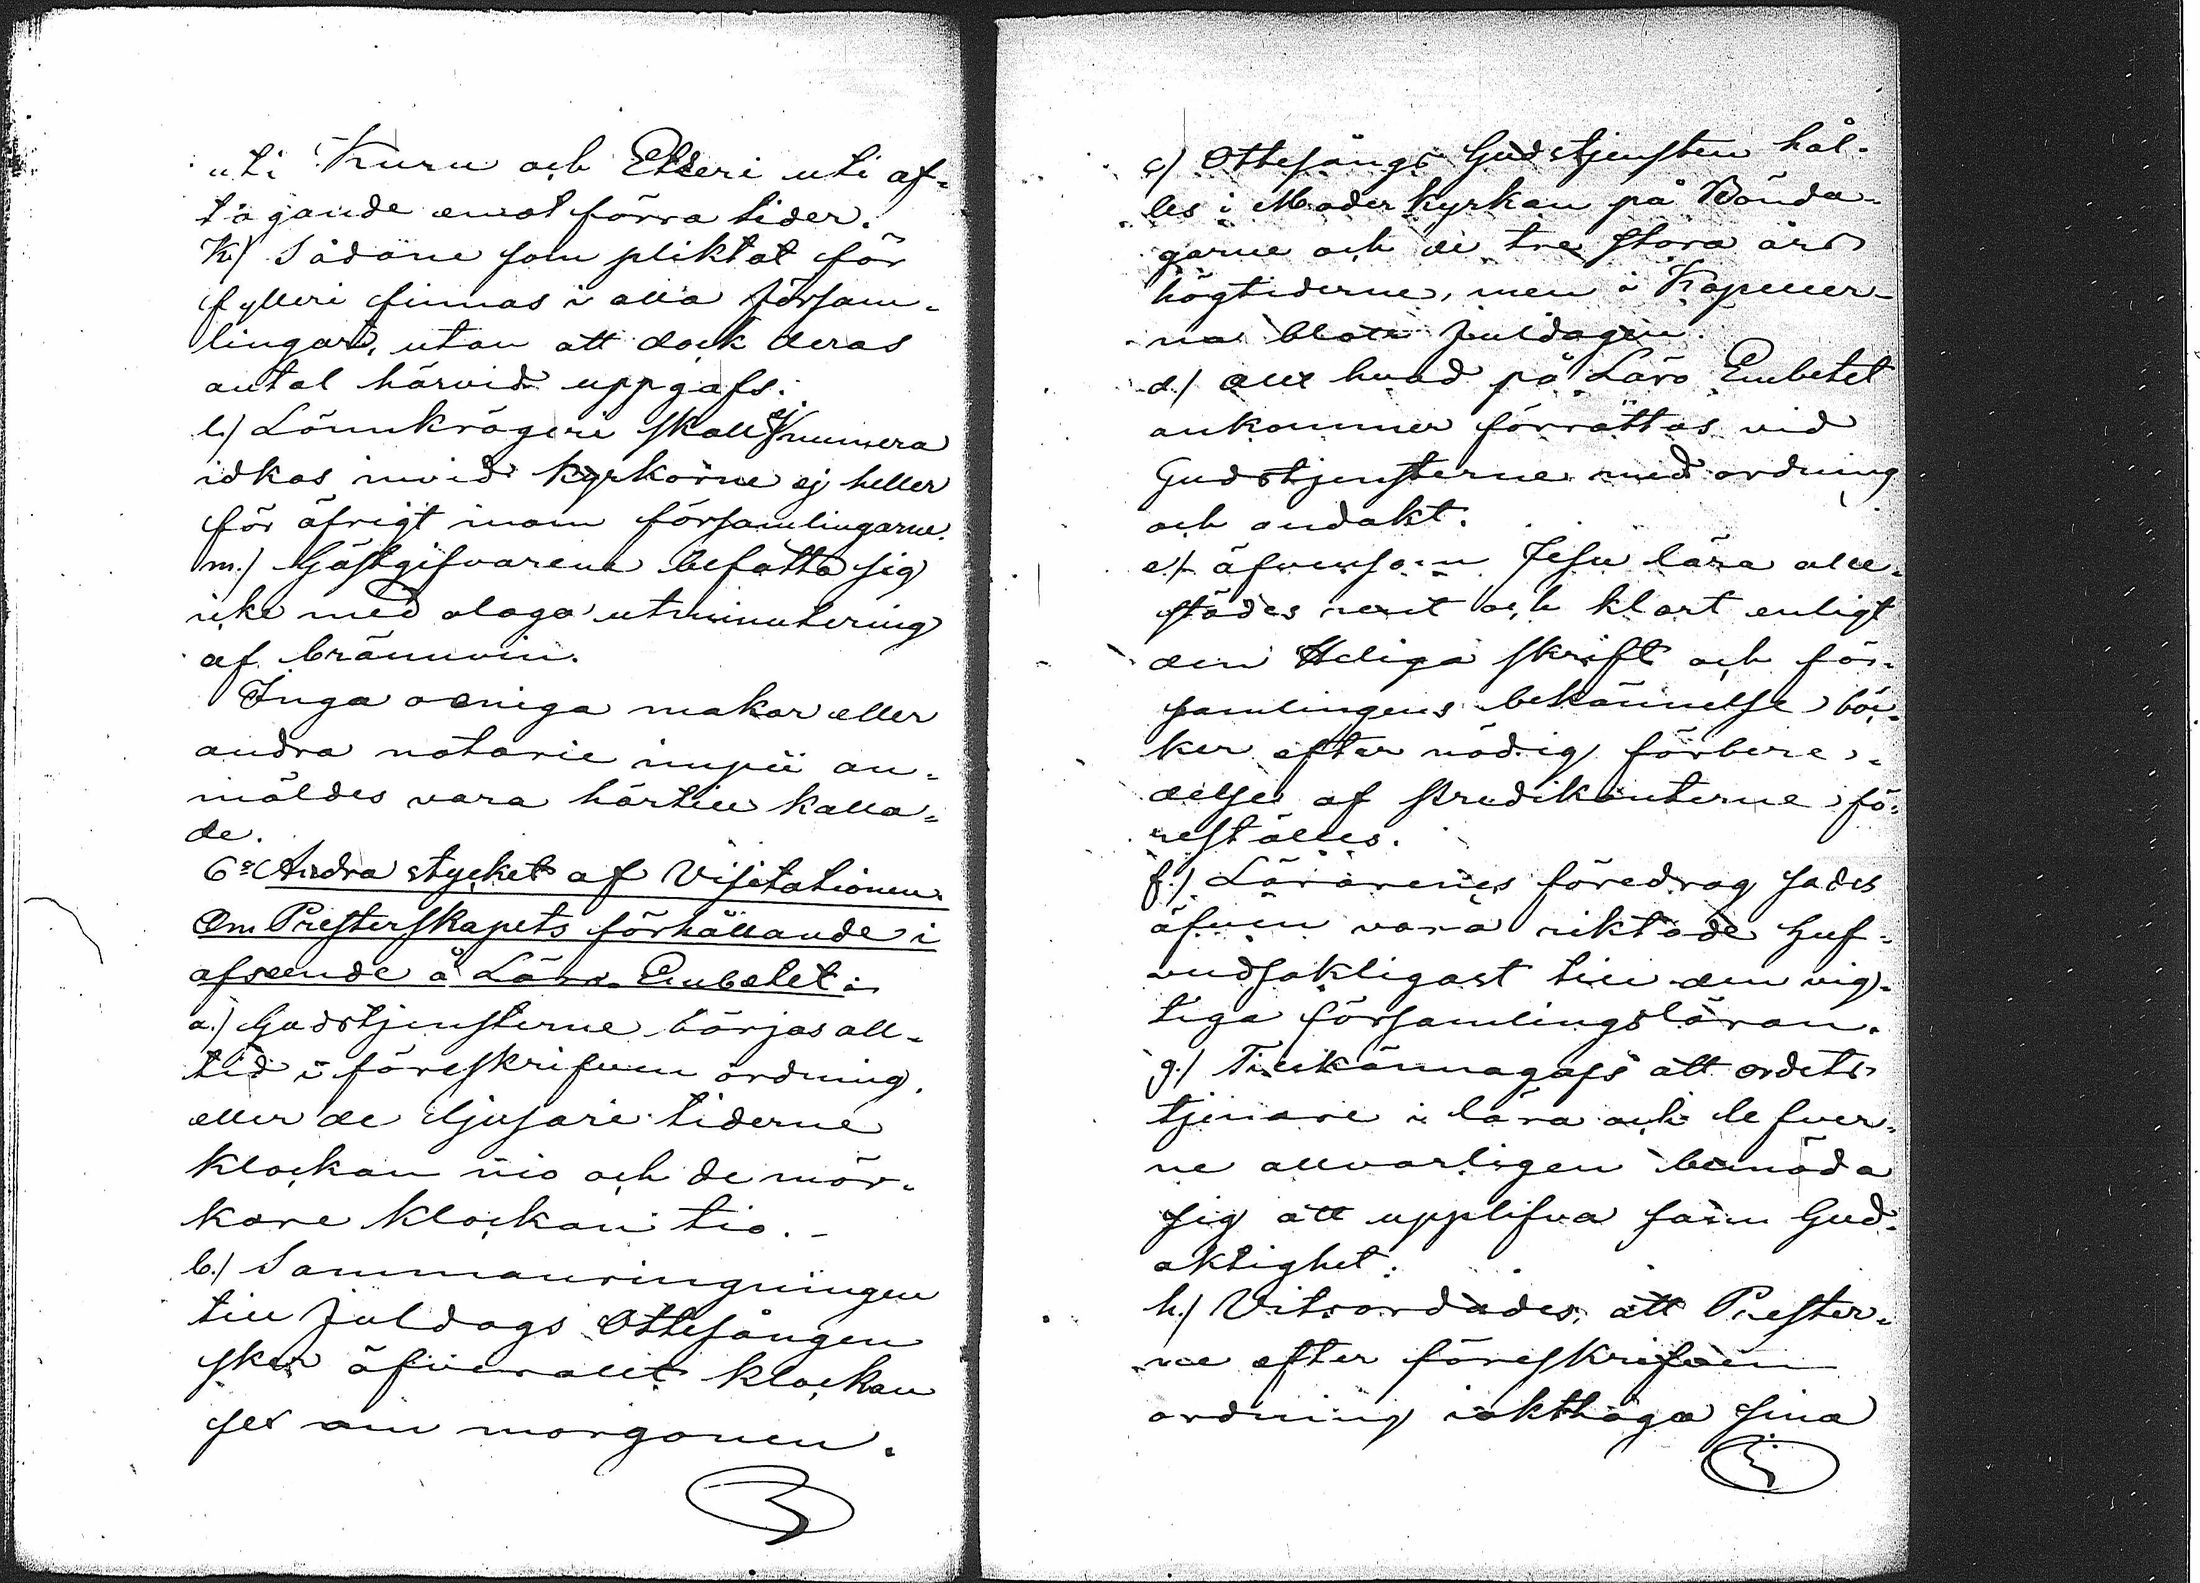 uti Kuru och Etseri uti af-
tagande emot förra tider.
k.) Sådane som pliktat för
fylleri finnas i alla försam-
lingar, utan att dock deras
antal härvid uppgafs.
l.) Lönnkrögeri skall ej numera
idkas invid kyrkorne ej heller
för öfrigt inom församlingarne.
m.) Gästgifvarene befatta sig
icke med olaga utminutering
af bränvin.
Inga oeniga makar eller
andra notorie impii an-
mäldes vara härtill kalla-
de.
6o Andra stycket af Visitationen.
Om Presterskapets förhållande i
afseende å Läro Embetet:
a.) Gudstjensterne börjas all-
tid i föreskrifven ordning,
eller de ljusare tiderne
klockan nio och de mör-
kare klockan tio. -
b.) Sammanringningen
till Juldags Ottesången
sker öfverallt klockan
sex om morgonen.
c) Ottesångs Gudstjensten hål-
les i Moderkyrkan på Böнда-
garne och de tre stora års
högtiderne, men i Kapeller-
na blott Juldagen.
d.) Allt hvad på Läro Embetet
ankommer förrättas vid
Gudstjensterne med ordning
och andakt.
e.) äfvensom Jesu lära alle-
städes rent och klart enligt
den Heliga skrift och för-
samlingens bekännelse böc-
ker efter nödig förbere-
delse af Predikanterne fö-
reställes.
f.) Lärarenes föredrag sades
äfven vara riktade huf-
vudsakligast till den vig-
tiga församlingsläran.
g.) Tillkännagafs att ordets
tjenare i lära och lefver-
ne allvarligen bemöda
sig att upplifva sann Gud-
aktighet.
h.) Vitsordades, att Prester-
ne efter föreskrifven
ordning iakttaga sina